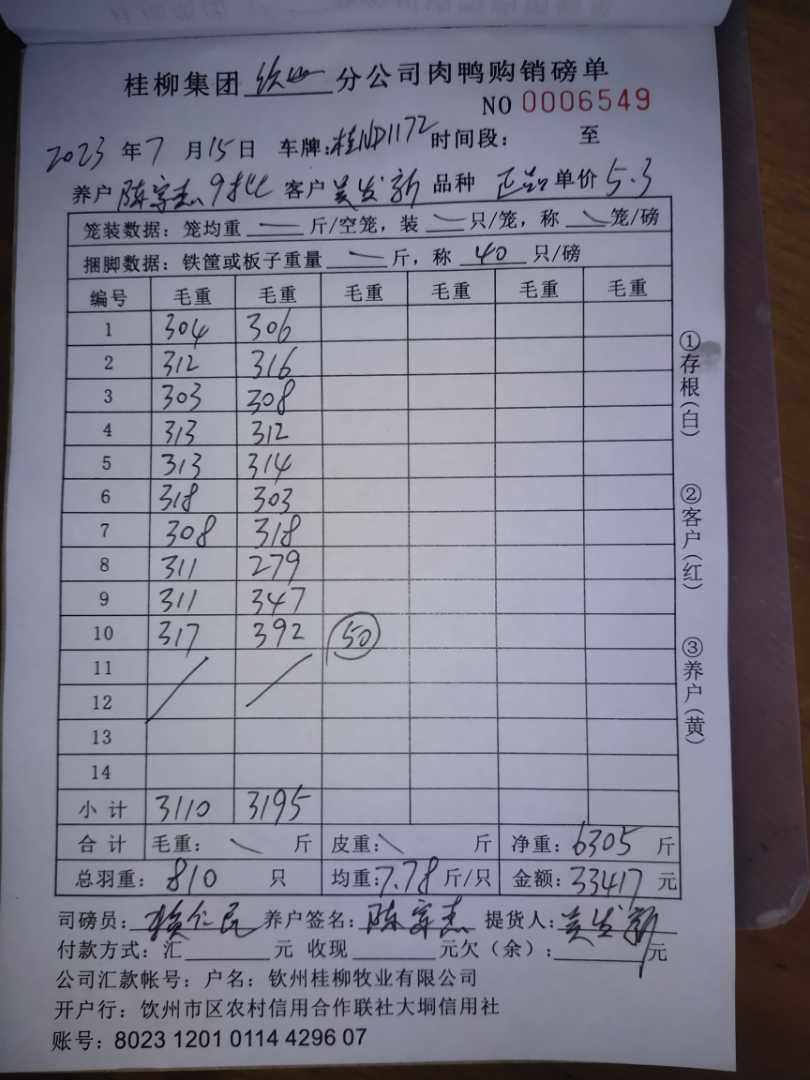 桂柳集团 钦州 分公司肉鸭购销磅单
NO 0006549
2023 年 7 月 15 日 车牌:桂ND1172 时间段: 至
养户 陈字杰 客户 吴发新 品种 正品 单价 5.3
笼装数据: 笼均重 — 斤/空笼, 装 — 只/笼, 称 — 笼/磅
捆脚数据: 铁筐或板子重量 — 斤, 称 40 只/磅
编号 毛重 毛重 毛重 毛重 毛重 毛重
1 304 306
2 312 316
3 303 308
4 313 312
5 313 314
6 318 303
7 308 318
8 311 279
9 311 347
10 317 392 50
11
12
13
14
小计 3110 3195
合计 毛重: 斤 皮重: 斤 净重: 6305 斤
总羽重: 810 只 均重: 7.78 斤/只 金额: 33417 元
司磅员: 养户签名: 提货人: 吴发新
付款方式: 汇 元 收现 元欠(余): 元
公司汇款帐号: 户名: 钦州桂柳牧业有限公司
开户行: 饮州市区农村信用合作联社大垌信用社
账号: 8023 1201 0114 4296 07
①存根(白)
②客户(红)
③养户(黄)